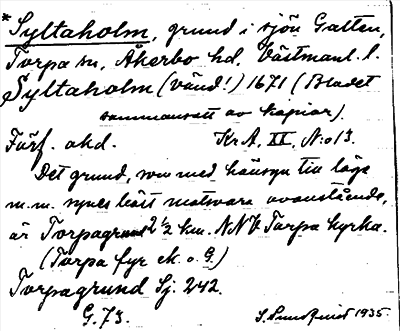 *Syltaholm, grund i sjön Galten,
Torpa sn, Åkerbo hd, Västmanl. l.
Syltaholm (vänd!) 1671 (Bladet
sammansatt av kopior).
Förf. okd. KrA, XX, N:o 13.
Det grund, som med hänsyn till läge
m.m. synes bäst motsvara ovanstående,
är Torpagrund 2 1/2 km. NNV Torpa kyrka.
(Torpa fyr ek. o. G.)
Torpagrund Sj. 242.
G. 73. 1935.